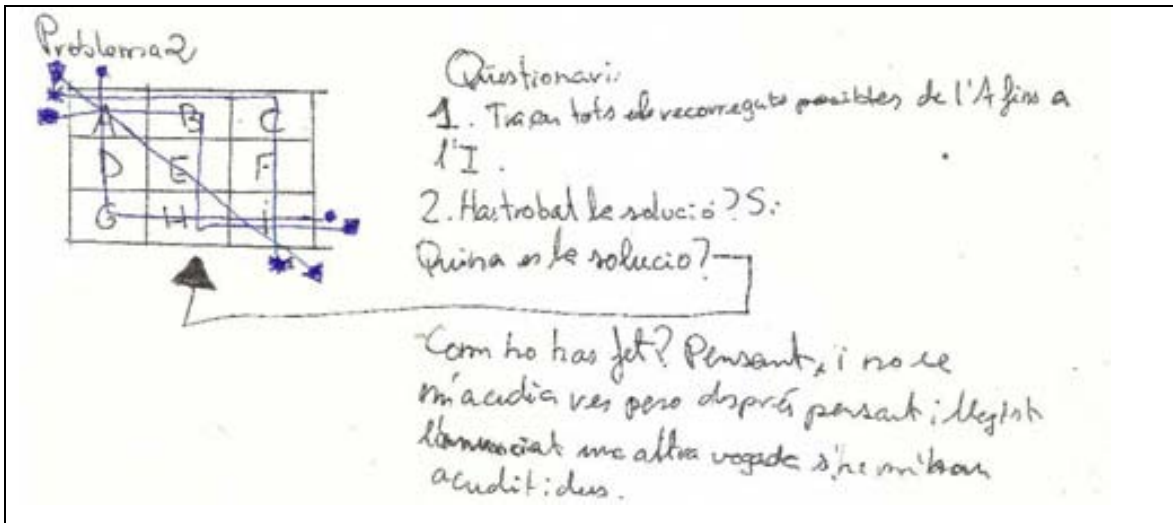 Problema 2
A B C
D E F
G H i
Qüestionari:
1. Traça tots els recorreguts possibles de l'A fins a
l'I.
2. Has trobat la solució? Si
Quina es la solucio?
Com ho has fet? Pensant, i no se
m'acudia res pero després pensant i llegint
una altra vegada
acudit idees.